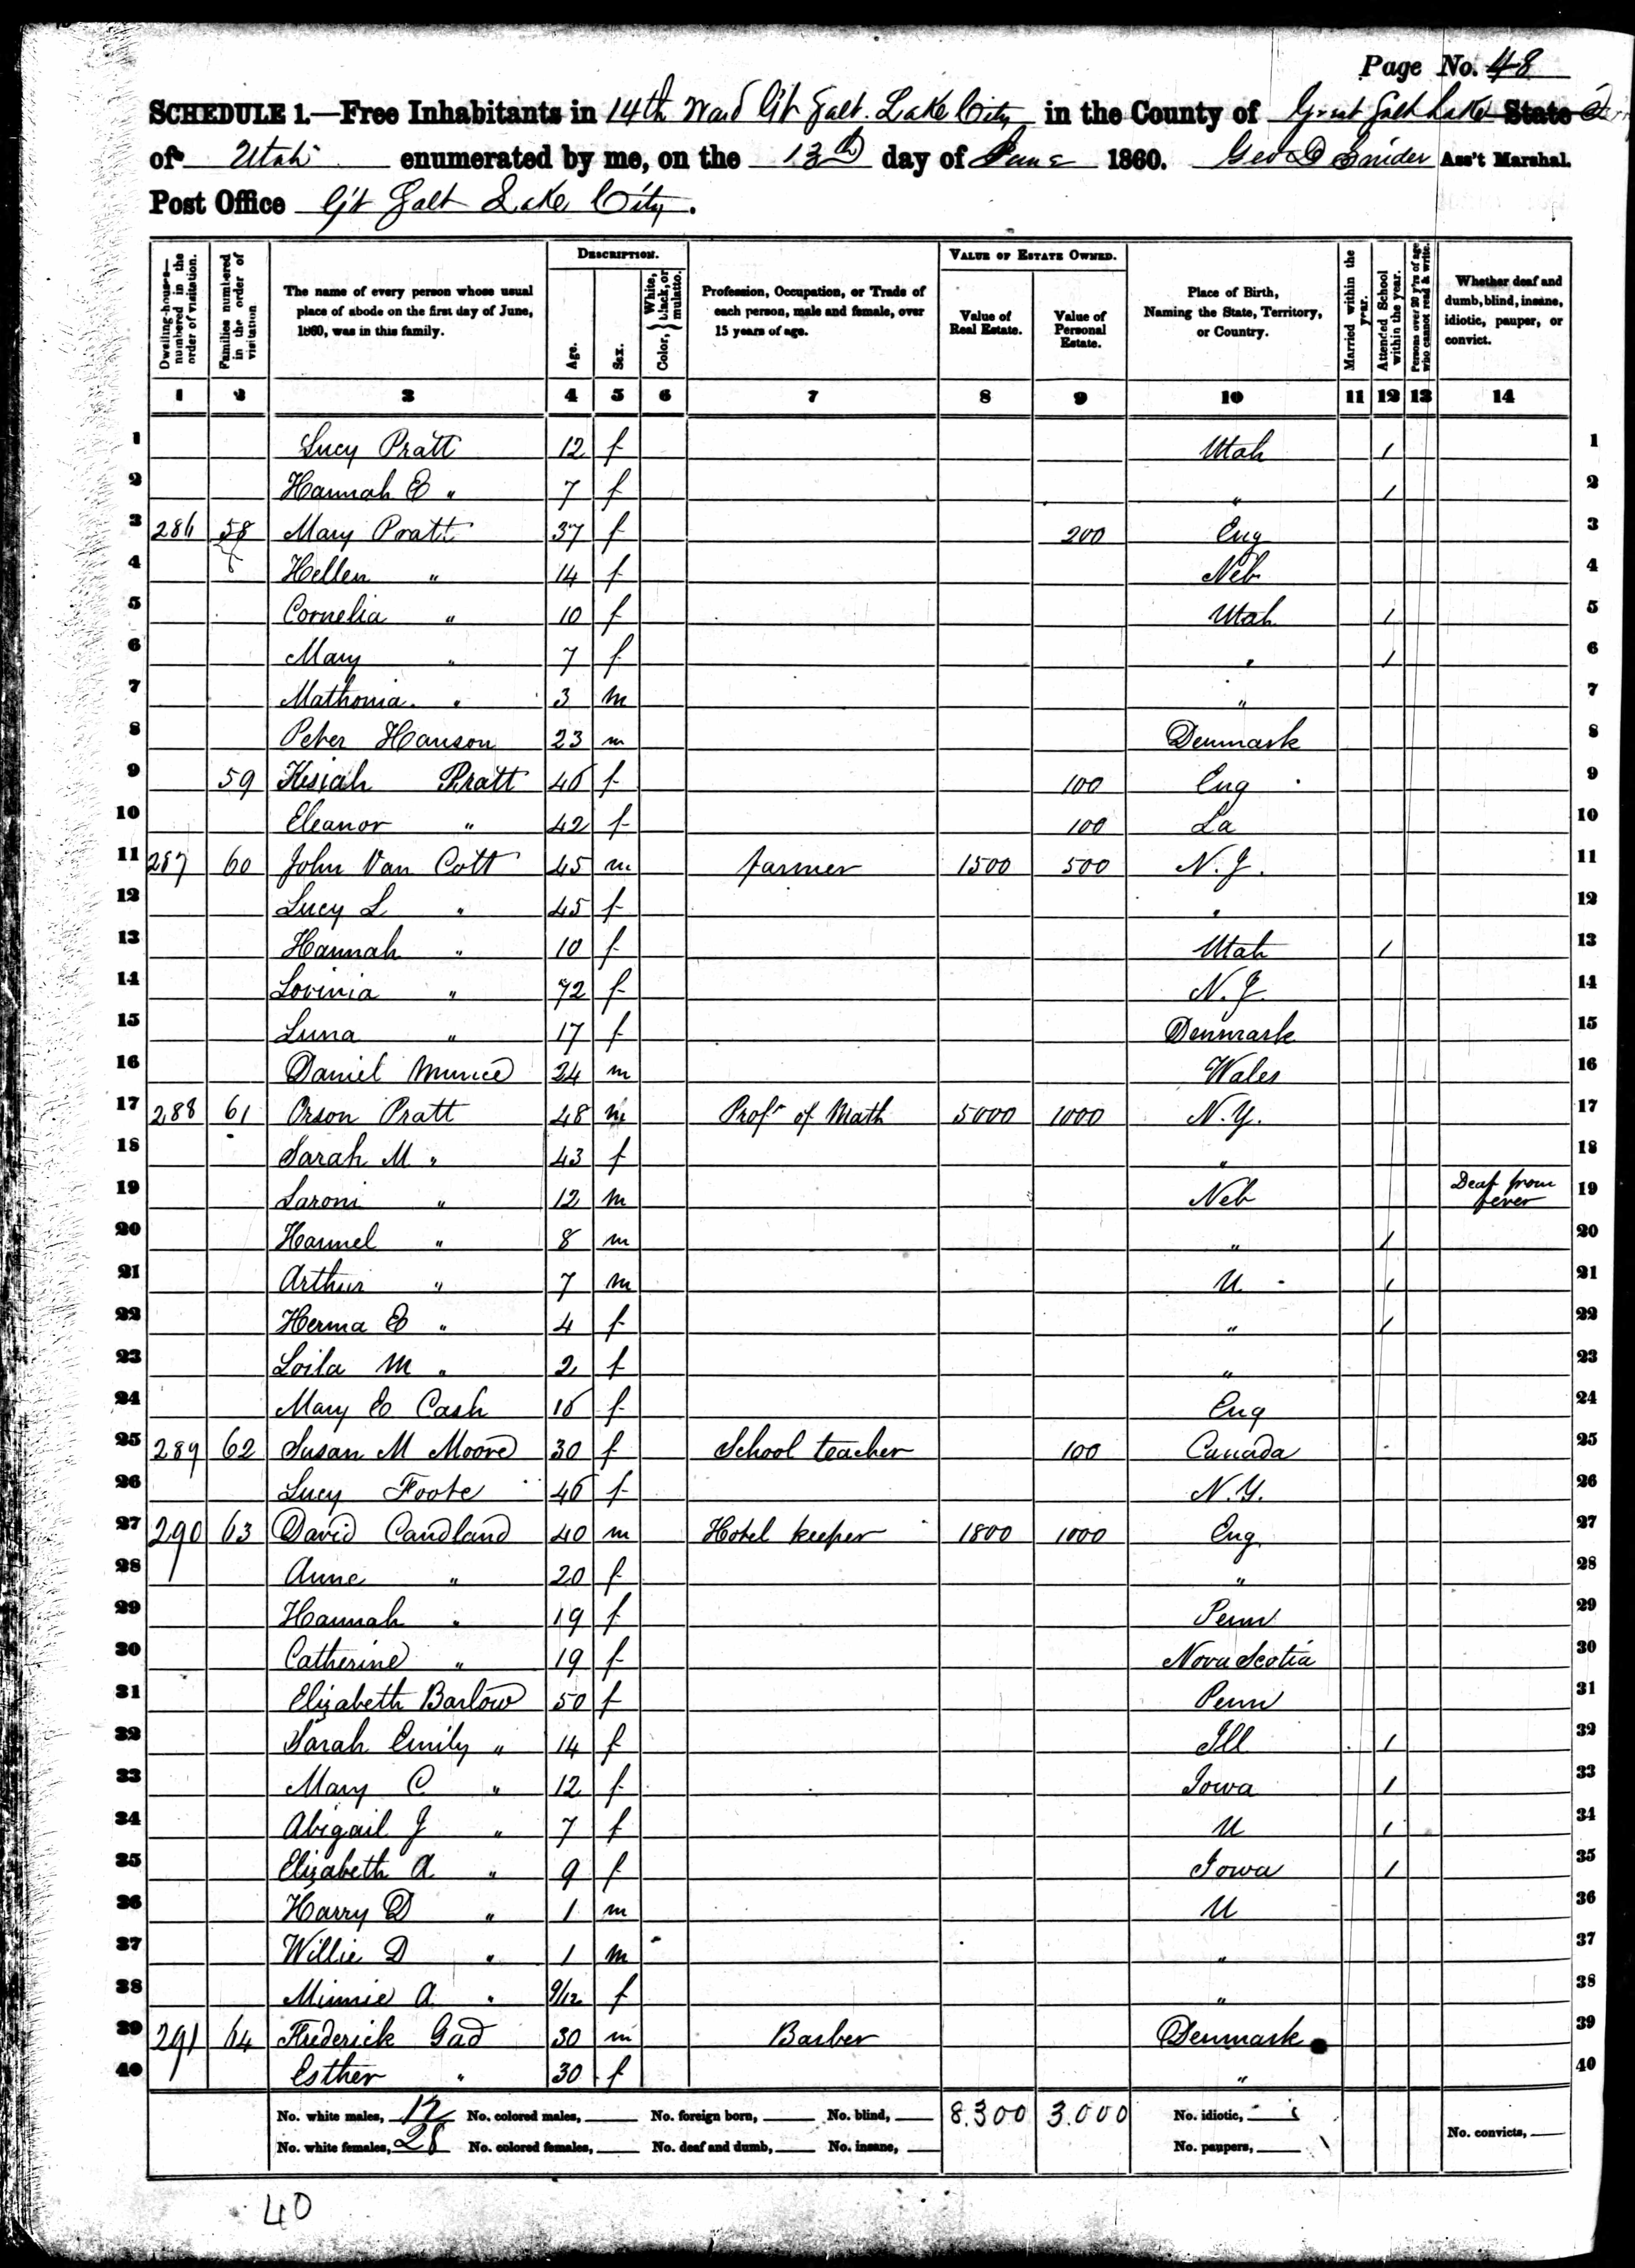 Page No. 48
SCHEDULE 1.—Free Inhabitants in 14th Ward Gt Salt. Lake City in the County of Great Salt Lake State
of Utah enumerated by me, on the 13th day of June 1860. Geo D Snider Ass't Marshal.
Post Office Gt Salt Lake City.
Dwelling-houses—numbered in the order of visitation.
Families numbered in the order of visitation
The name of every person whose usual place of abode on the first day of June, 1860, was in this family.
DESCRIPTION.
Age.
Sex.
Color, { White, black, or mulatto.
Profession, Occupation, or Trade of each person, male and female, over 15 years of age.
VALUE OF ESTATE OWNED.
Value of Real Estate.
Value of Personal Estate.
Place of Birth, Naming the State, Territory, or Country.
Married within the year.
Attended School within the year.
Persons over 20 y'rs of age who cannot read & write.
Whether deaf and dumb, blind, insane, idiotic, pauper, or convict.
1 2 3 4 5 6 7 8 9 10 11 12 13 14
1 Lucy Pratt 12 f Utah / 1
2 Hannah E " 7 f " / 2
3 286 58 Mary Pratt 37 f 200 Eng 3
4 Hellen " 14 f Neb 4
5 Cornelia " 10 f Utah / 5
6 Mary " 7 f " / 6
7 Mathonia " 3 m " 7
8 Peter Hanson 23 m Denmark 8
9 59 Kesiah Pratt 46 f 100 Eng 9
10 Eleanor " 42 f 100 La 10
11 287 60 John Van Cott 45 m farmer 1500 500 N.Y. 11
12 Lucy L " 45 f " 12
13 Hannah " 10 f Utah / 13
14 Lovinia " 72 f N.Y. 14
15 Luna " 17 f Denmark 15
16 Daniel 24 m Wales 16
17 288 61 Orson Pratt 48 m Profr of Math 5000 1000 N.Y. 17
18 Sarah M " 43 f " 18
19 Laroni " 12 m Neb Deaf from fever 19
20 Harmel " 8 m " / 20
21 Arthur " 7 m U / 21
22 Herma E " 4 f " / 22
23 Loila M " 2 f " 23
24 Mary E Cash 16 f Eng 24
25 289 62 Susan M Moore 30 f School teacher 100 Canada 25
26 Lucy Foote 46 f N.Y. 26
27 290 63 David Candland 40 m Hotel keeper 1800 1000 Eng 27
28 Anne " 20 f " 28
29 Hannah " 19 f Penn 29
30 Catherine " 19 f Nova Scotia 30
31 Elizabeth Barlow 50 f Penn 31
32 Sarah Emily " 14 f Ill / 32
33 Mary C " 12 f Iowa / 33
34 Abigail J " 7 f U / 34
35 Elizabeth A " 9 f Iowa / 35
36 Harry D " 1 m U 36
37 Willie D " 1 m " 37
38 Minnie A " 9/12 f " 38
39 291 64 Frederick Gad 30 m Barber Denmark 39
40 Esther " 30 f " 40
No. white males, 12 No. colored males, No. foreign born, No. blind, 8.300 3.000 No. idiotic,
No. white females, 28 No. colored females, No. deaf and dumb, No. insane, No. paupers, No. convicts,
40